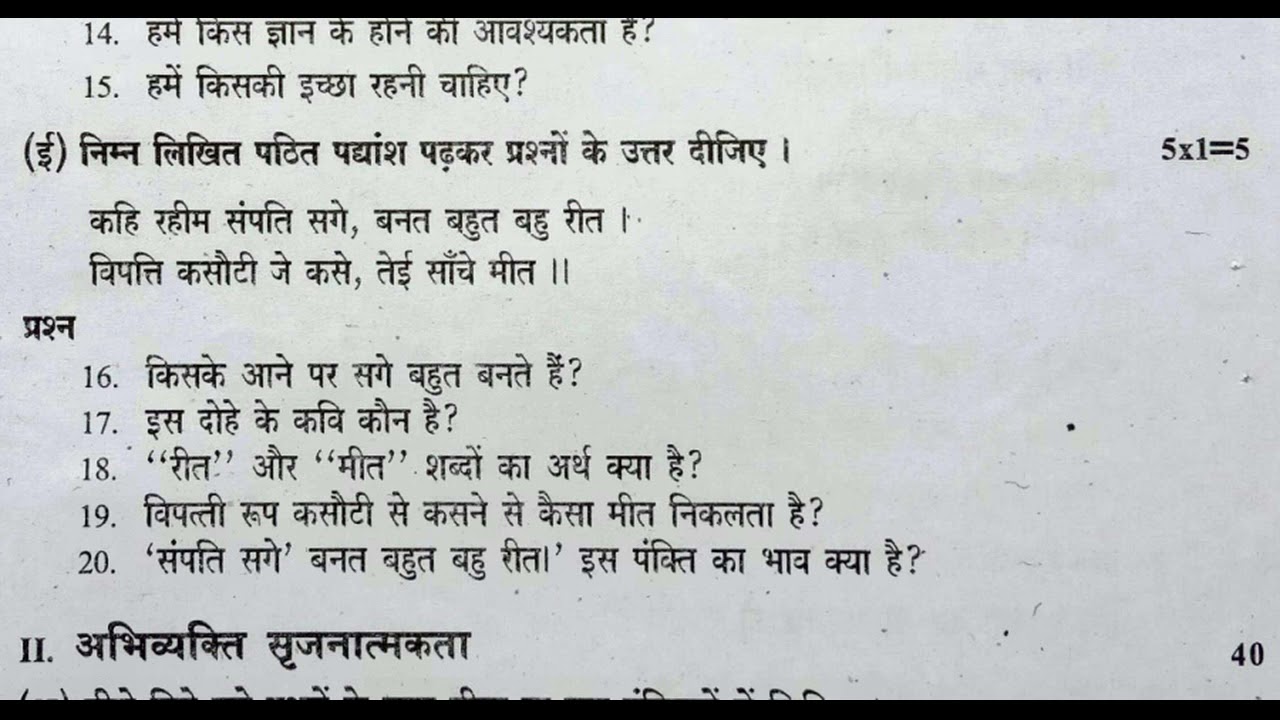 14. हमें किस ज्ञान के होने की आवश्यकता है?
15. हमें किसकी इच्छा रहनी चाहिए?
(ई) निम्न लिखित पठित पद्यांश पढ़कर प्रश्नों के उत्तर दीजिए । 5x1=5
कहि रहीम संपति सगे, बनत बहुत बहु रीत ।
विपत्ति कसौटी जे कसे, तेई साँचे मीत ।।
प्रश्न
16. किसके आने पर सगे बहुत बनते हैं?
17. इस दोहे के कवि कौन है?
18. “रीत” और “मीत” शब्दों का अर्थ क्या है?
19. विपत्ती रूप कसौटी से कसने से कैसा मीत निकलता है?
20. ‘संपति सगे’ बनत बहुत बहु रीत।’ इस पंक्ति का भाव क्या है?
II. अभिव्यक्ति सृजनात्मकता 40